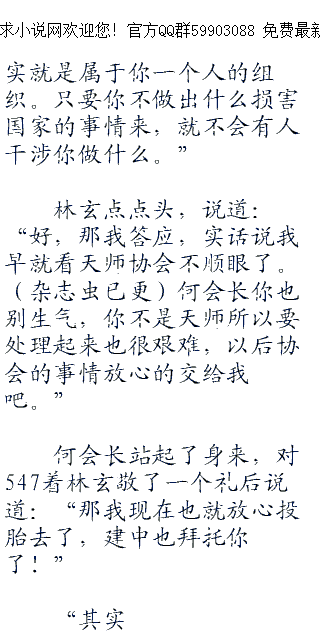 求小说网欢迎您！官方QQ群59903088 免费最新
实就是属于你一个人的组
织。只要你不做出什么损害
国家的事情来，就不会有人
干涉你做什么。”
林玄点点头，说道：
“好，那我答应，实话说我
早就看天师协会不顺眼了。
（杂志虫已更）何会长你也
别生气，你不是天师所以要
处理起来也很艰难，以后协
会的事情放心的交给我
吧。”
何会长站起了身来，对
547着林玄敬了一个礼后说
道：“那我现在也就放心投
胎去了，建中也拜托你
了！”
“其实